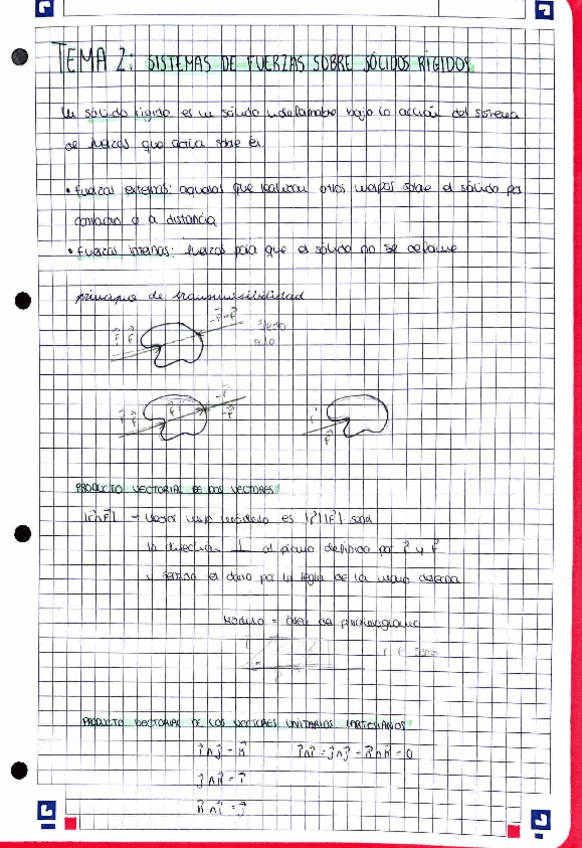 TEMA 2: SISTEMAS DE FUERZAS SOBRE SÓLIDOS RÍGIDOS
Un sólido rígido es un sólido indeformable bajo la acción del sistema
de fuerzas que actúa sobre él.
• Fuerzas externas: aquellas que realizan otros cuerpos sobre el sólido por
contacto o a distancia
• Fuerzas internas: fuerzas para que el sólido no se deforme
principio de transmisibilidad
PRODUCTO VECTORIAL DE DOS VECTORES
|r⃗∧F⃗| → vector cuyo módulo es |r⃗||F⃗| senα
la dirección ⊥ al plano definido por r⃗ y F⃗
y sentido el dado por la regla de la mano derecha
Módulo = área del paralelogramo
PRODUCTO VECTORIAL DE LOS VECTORES UNITARIOS CARTESIANOS
i⃗∧j⃗ = k⃗ i⃗∧i⃗ = j⃗∧j⃗ = k⃗∧k⃗ = 0
j⃗∧k⃗ = i⃗
k⃗∧i⃗ = j⃗